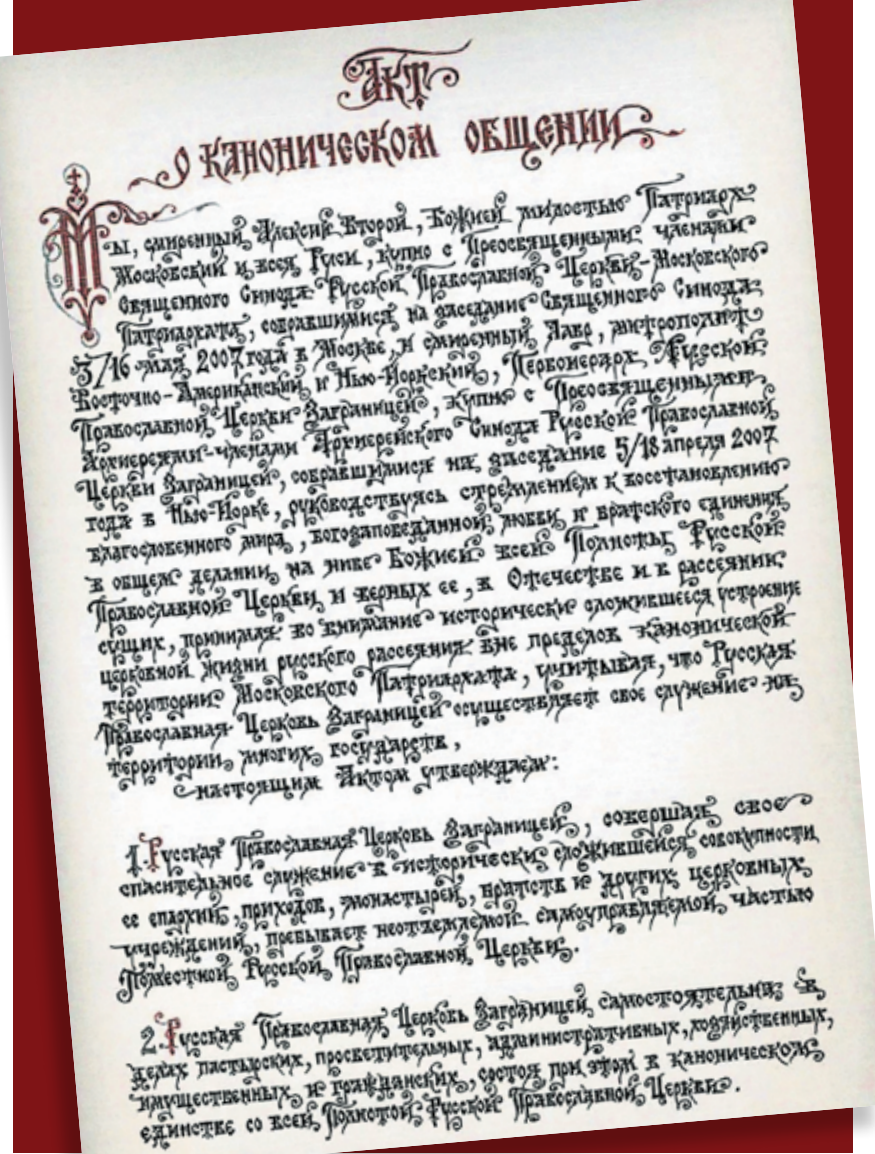 Акт
о каноническом общении
Мы, смиренный Алексий Второй, Божией милостью Патриарх
Московский и всея Руси, купно с Преосвященными членами
Священного Синода Русской Православной Церкви–Московского
Патриархата, собравшимися на заседание Священного Синода
3/16 мая 2007 года в Москве, и смиренный Лавр, митрополит
Восточно-Американский и Нью-Йоркский, Первоиерарх Русской
Православной Церкви Заграницей, купно с Преосвященными
Архиереями-членами Архиерейского Синода Русской Православной
Церкви Заграницей, собравшимися на заседание 5/18 апреля 2007
года в Нью-Йорке, руководствуясь стремлением к восстановлению
благословенного мира, Богозаповеданной любви и братского единения
в общем делании на ниве Божией всей Полноты Русской
Православной Церкви и верных ее, в Отечестве и в рассеянии
сущих, принимая во внимание исторически сложившееся устроение
церковной жизни русского рассеяния вне пределов канонической
территории Московского Патриархата, учитывая, что Русская
Православная Церковь Заграницей осуществляет свое служение на
территории многих государств,
настоящим Актом утверждаем:
1. Русская Православная Церковь Заграницей, совершая свое
спасительное служение в исторически сложившейся совокупности
ее епархий, приходов, монастырей, братств и других церковных
учреждений, пребывает неотъемлемой самоуправляемой частью
Поместной Русской Православной Церкви.
2. Русская Православная Церковь Заграницей самостоятельна в
делах пастырских, просветительных, административных, хозяйственных,
имущественных и гражданских, состоя при этом в каноническом
единстве со всей Полнотой Русской Православной Церкви.